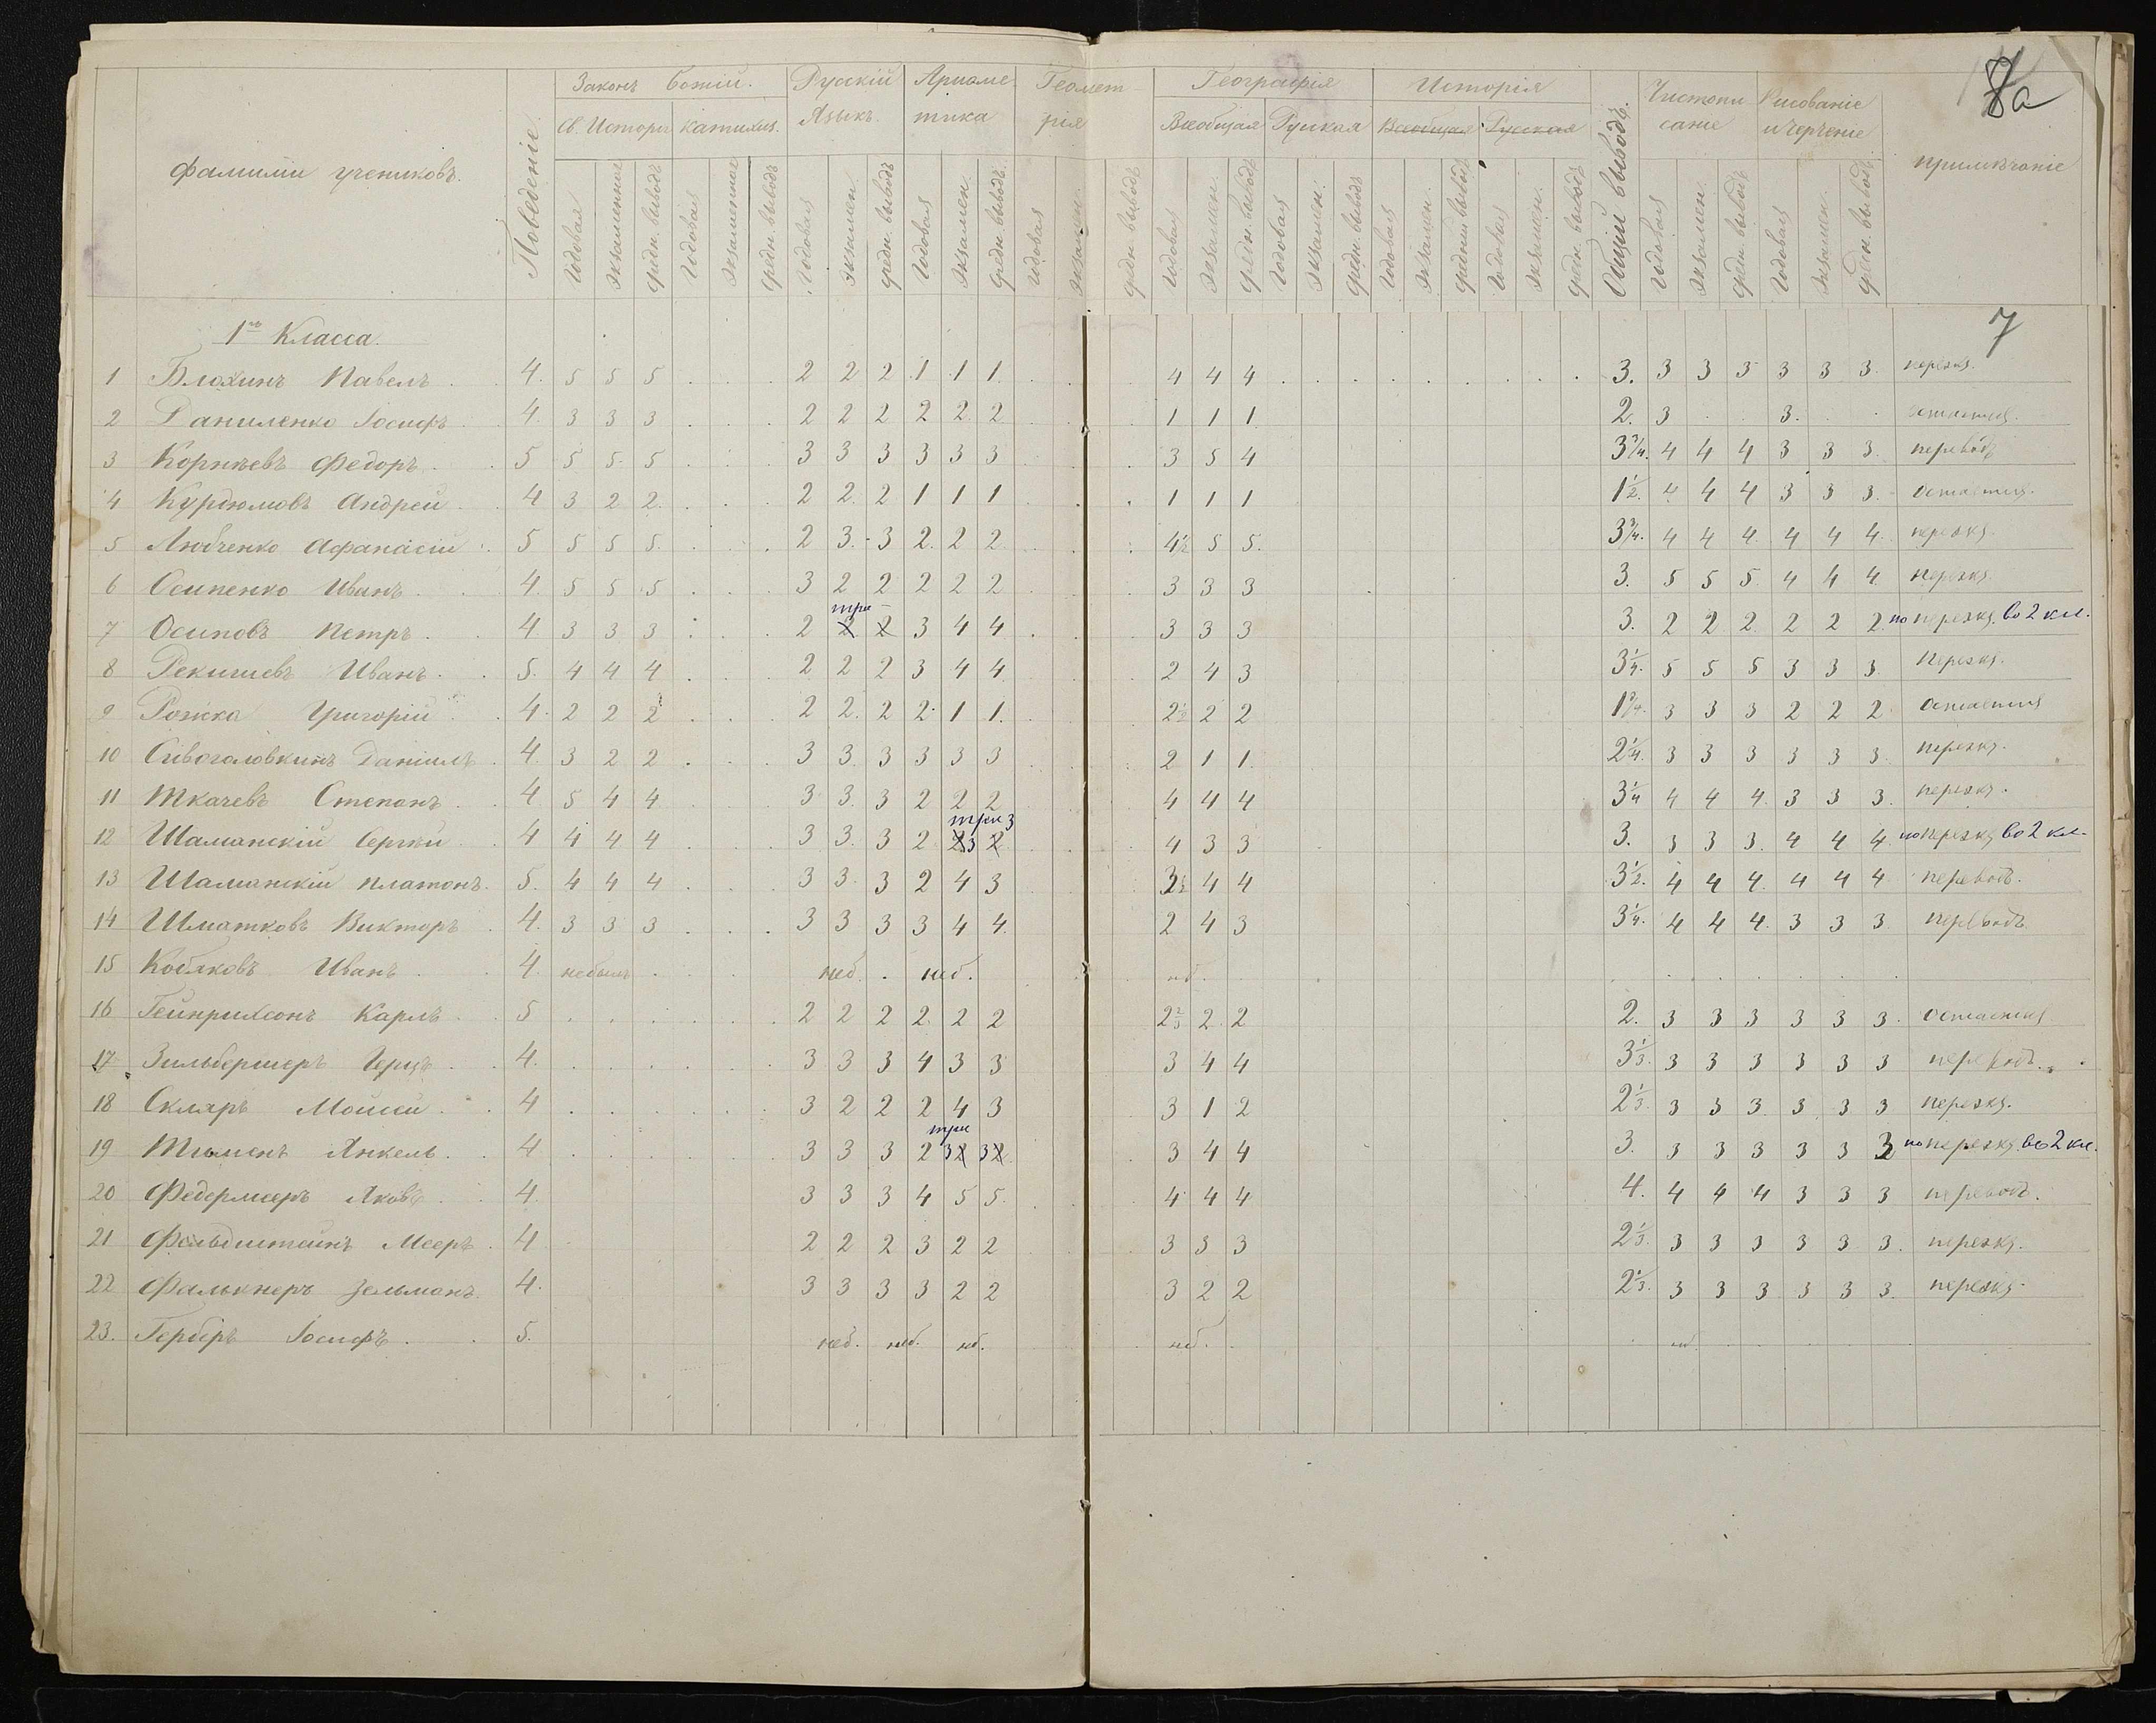 8а
Фамилии учениковъ. Поведеніе. Законъ Божій. Русскій Языкъ. Ариѳметика Геометрія География Исторія Общій выводъ. Чистописаніе Рисованіе и черченіе Примѣчаніе
Св. Истори Катихиз. Всеобщая Русская Всеобщая Русская
Годовая Экзаменная Средн. выводъ Годовая Экзаменная Средн. выводъ Годовая Экзамен. Средн. выводъ Годовая Экзамен. Средн. выводъ Годовая Экзамен. Средн. выводъ Годовая Экзамен. Средн. выводъ Годовая Экзамен. Средн. выводъ Годовая Экзамен. Средній вывод Годовая Экзамен. Средн. выводъ Годовая Экзамен. Средн. выводъ Годовая Экзамен. Средн. выводъ
1го Класса. 7
1 Блохинъ Павелъ 4. 5 5 5 2 2 2 1 1 1. 4 4 4 3. 3 3 3 3 3 3. перекз.
2 Даниленко Іосифъ 4. 3 3 3 2 2 2 2 2. 2 1 1 1 2. 3 3. остается.
3 Корнѣевъ Федоръ 5 5 5 5 3 3 3 3 3 3 3 5 4 3 3/4. 4 4 4 3 3 3. переводъ
4 Курдюмовъ Андрей 4 3 2 2. 2 2. 2 1 1 1 1 1 1 1 1/2. 4 4 4 3 3 3. Остается.
5 Любченко Афанасій 5 5 5 5. 2 3. 3 2. 2 2 4 1/2 5 5. 3 3/4. 4 4 4. 4 4 4. перекз.
6 Осипенко Иванъ 4. 5 5 5 3 2 2 2 2 2 3 3 3 3. 5 5 5. 4 4 4. перекз.
три
7 Осиповъ Петръ 4. 3 3 3 2 2 2 3 4 4 3 3 3 3. 2 2 2. 2 2 2. по перекз. во 2 кл.
8 Рекишевъ Иванъ. 5. 4 4 4 2 2 2 3 4 4 2 4 3 3 1/4. 5 5 5 3 3 3 Перекз.
9 Рожка Григорій 4. 2 2 2 2 2. 2 2 1 1. 2 1/2 2 2 1 3/4. 3 3 3 2 2 2 Остается
10 Сивоголовкинъ Даніилъ 4. 3 2 2 3 3. 3 3 3 3 2 1 1. 2 1/4. 3 3 3 3 3 3. перекз.
11 Ткачевъ Степанъ 4 5 4 4 3 3. 3 2 2 2 4 4 4 3 1/4 4 4 4. 3 3 3. перекз.
три 3
12 Шаманскій Сергѣй 4 4 4 4 3 3. 3 2 23 2 4 3 3 3. 3 3 3. 4 4 4. по перекз. во 2 кл.
13 Шаманскій Платонъ. 5. 4 4 4 3 3. 3 2 4 3 3 1/2 4 4 3 1/2. 4 4 4. 4 4 4. переводъ.
14 Шматковъ Викторъ 4. 3 3 3 3 3 3 3 4 4. 2 4 3 3 1/4. 4 4 4. 3 3 3. переводъ
15 Кобяковъ Иванъ 4. небылъ неб. неб. нб.
16 Гейнрихсонъ Карлъ 5 2 2 2 2. 2 2 2 2/3 2. 2 2. 3 3 3 3 3 3. Остается
17 Зильбершеръ Герцъ 4. 3 3 3 4 3 3 3 4 4 3 1/3. 3 3 3 3 3 3 переводъ.
18 Скляръ Мойсей 4 3 2 2 2 4 3 3 1 2 2 1/3. 3 3 3. 3 3 3 перекз.
три
19 Янкель 4 3 3 3 2 32 32 3 4 4 3. 3 3 3 3 3 3 по перекз. во 2 кл.
20 Федермееръ Яковъ 4. 3 3 3 4 5 5. 4 4 4 4. 4 4 4 3 3 3 переводъ.
21 Фельдштейнъ Мееръ 4 2 2 2 3 2 2 3 3 3 2 1/3. 3 3 3 3 3 3. перекз.
22 Фалькнеръ Зельманъ. 4. 3 3 3 3 2 2 3 2 2 2 1/3. 3 3 3 3 3 3. перекз.
23. Герберъ Іосифъ 5. неб. неб. нб. нб. нб.